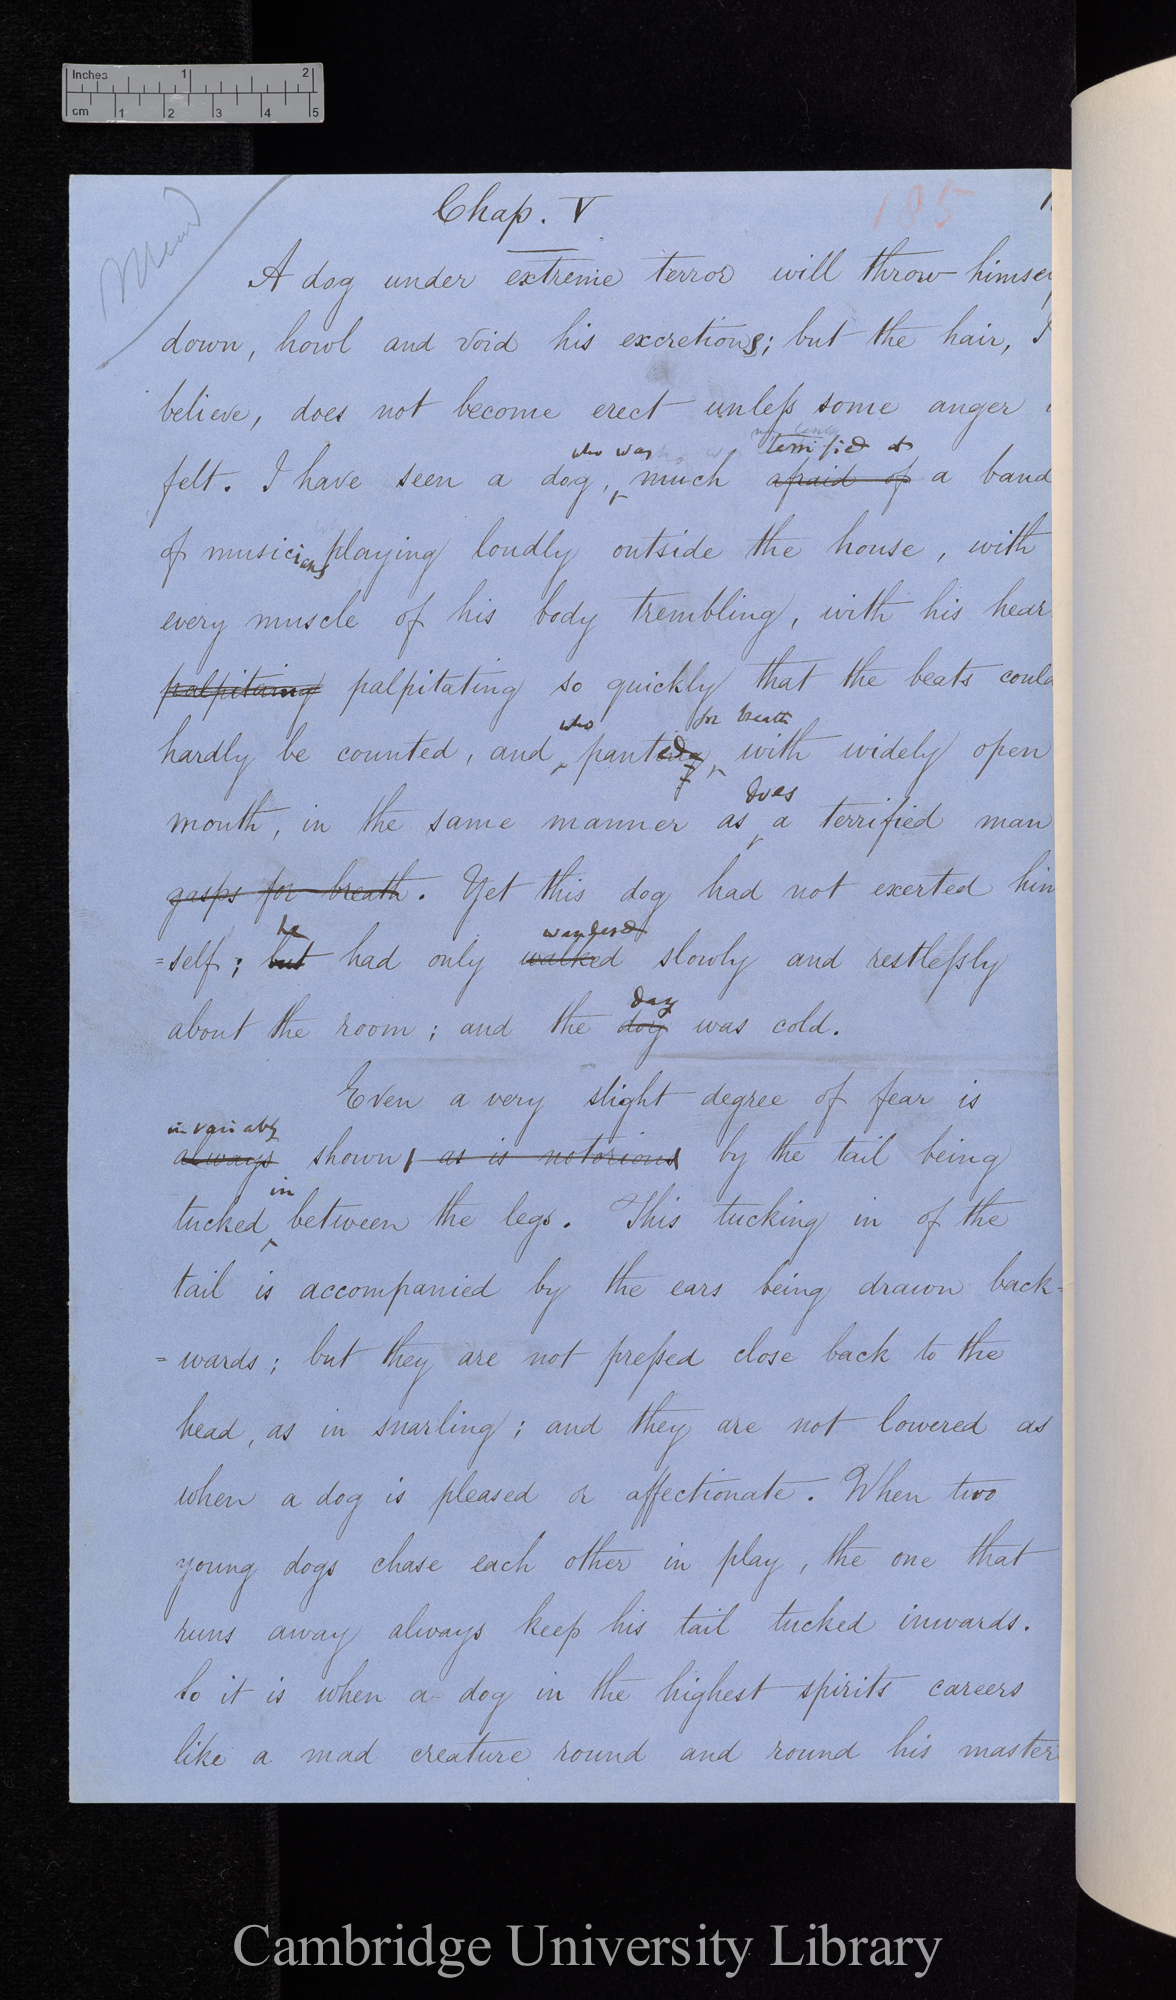 Inches 1 2
cm 1 2 3 4 5
Chap. V 185
A dog under extreme terror will throw himse
down, howl and void his excretions; but the hair, I
believe, does not become erect unless some anger
who was terrified at
felt. I have seen a dog, much afraid of a band
of musicians playing loudly outside the house, with
every muscle of his body trembling, with his hear
palpitaing palpitating so quickly that the beats could
who for breath
hardly be counted, and panted, with widely open
does
mouth, in the same manner as a terrified man
gasps for breath. Yet this dog had not exerted him
he wandered
=self; but had only walked slowly and restlessly
day
about the room; and the dog was cold.
Even a very slight degree of fear is
invariably
always shown, as is notorious by the tail being
in
tucked between the legs. This tucking in of the
tail is accompanied by the ears being drawn back=
=wards; but they are not pressed close back to the
head, as in snarling; and they are not lowered as
when a dog is pleased or affectionate. When two
young dogs chase each other in play, the one that
runs away always keep his tail tucked inwards.
So it is when a dog in the highest spirits careers
like a mad creature round and round his master
Cambridge University Library